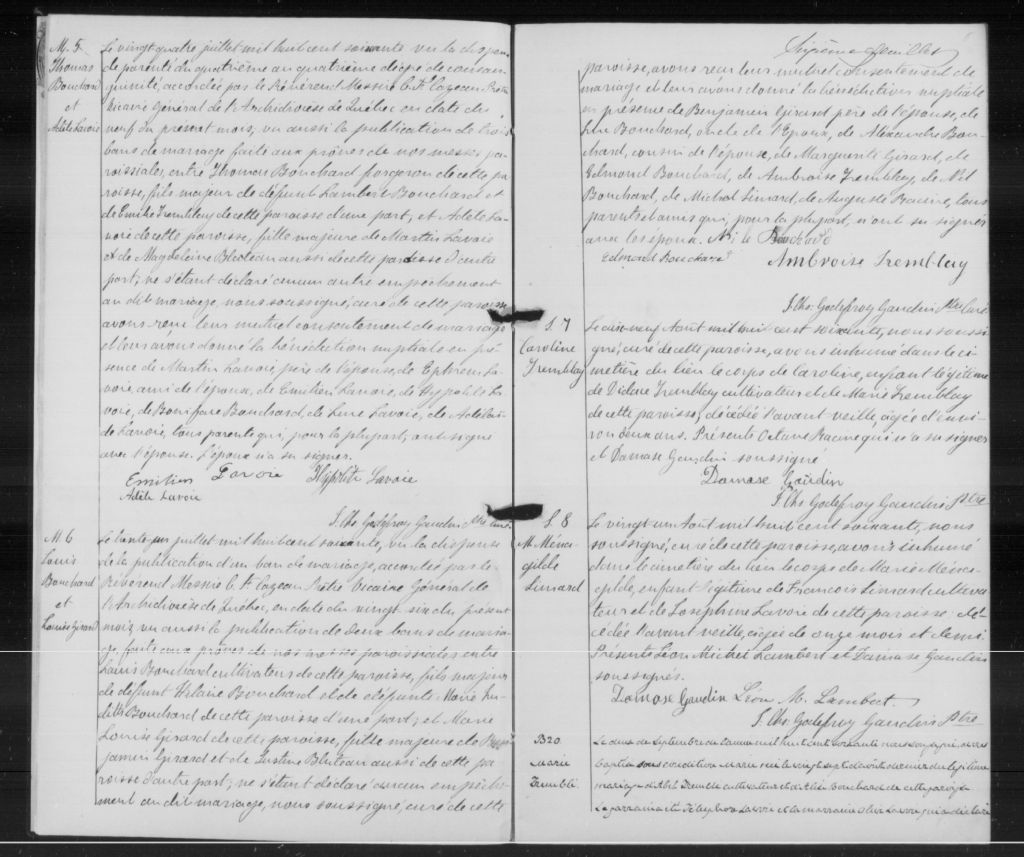 M. 5
Thomas
Bouchard
et
Adèle Lavoie
Le vingt quatre juillet mil huit cent soixante vu la dispen-
de parenté du quatrième au quatrième degré de consan-
guinité, accordée par le Révérend Messire C. F. Cazeau Prêtre
Vicaire Général de l'Archidiocèse de Québec en date du
neuf du présent mois, vu aussi la publication de trois
bans de mariage faite aux prônes de nos messes pa-
roissiales, entre Thomas Bouchard forgeron de cette pa-
roisse, fils majeur de défunt Lambert Bouchard et
de Emilie Tremblay de cette paroisse d'une part, et Adèle La-
voie de cette paroisse, fille majeure de Martin Lavoie
et de Magdeleine Bluteau aussi de cette paroisse d'autre
part; ne s'étant déclaré aucun autre empêchement
au dit mariage, nous soussigné, curé de cette paroisse
avons reçu leur mutuel consentement de mariage
et leur avons donné la bénédiction nuptiale en pré-
sence de Martin Lavoie, père de l'épouse, de Ephrem La-
voie ami de l'époux, de Emilien Lavoie, de Hypolite La-
voie, de Boniface Bouchard, de Luce Lavoie, de
de Lavoie, tous parents qui, pour la plupart, ont signé
avec l'épouse. L'époux n'a su signer.
Emilien Lavoie Hypolite Lavoie
Adèle Lavoie
J. Chs. Godefroy Gaudin Ptre Curé
M 6
Louis
Bouchard
et
Louise Girard
Le trente un juillet mil huit cent soixante, vu la dispense
de la publication d'un ban de mariage, accordée par le
Révérend Messire C. F. Cazeau Prêtre Vicaire Général de
l'Archidiocèse de Québec, en date du vingt six du présent
mois, vu aussi la publication de deux bans de maria-
ge, faite aux prônes de nos messes paroissiales entre
Louis Bouchard cultivateur de cette paroisse, fils majeur
de défunt Hilaire Bouchard et de défunte Marie Ju-
dith Bouchard de cette paroisse d'une part; et Marie
Louise Girard de cette paroisse, fille majeure de Ben-
jamin Girard et de Justine Bluteau aussi de cette pa-
roisse d'autre part; ne s'étant déclaré aucun empêche-
ment au dit mariage, nous soussigné, curé de cette
Sixième feuillet
paroisse, avons reçu leur mutuel consentement de
mariage et leur avons donné la bénédiction nuptiale
en présence de Benjamin Girard père de l'épouse, de
Bouchard, oncle de l'Epoux, de Alexandre Bou-
chard, cousin de l'épouse, de Marguerite Girard, de
Edmond Bouchard, de Ambroise Tremblay, de
Bouchard, de Michel Simard, de Auguste Racine, tous
parents et amis qui, pour la plupart, n'ont su signer
avec les époux. Bouchard
Edmond Bouchard Ambroise Tremblay
J. Chs. Godefroy Gaudin Ptre Curé
S 7
Caroline
Tremblay
Le dix-neuf Août mil huit cent soixante, nous soussi-
gné, curé de cette paroisse, avons inhumé dans le ci-
metière du lieu le corps de Caroline, enfant légitime
de Tremblay cultivateur et de Marie Tremblay
de cette paroisse, décédée l'avant veille, âgée d'envi-
ron deux ans. Présents Octave Racine qui n'a su signer
et Damase Gaudin soussigné
Damase Gaudin
J. Chs Godefroy Gaudin Ptre
S 8
M. Ménè-
gilde
Simard
Le vingt un Août mil huit cent soixante, nous
soussigné, curé de cette paroisse, avons inhumé
dans le cimetière du lieu le corps de Marie Méné-
gilde, enfant légitime de François Simard cultiva-
teur et de Joséphine Lavoie de cette paroisse, dé-
cédée l'avant veille, âgée de onze mois et demi.
Présents Léon Michel Lambert et Damase Gaudin
soussignés.
Damase Gaudin Léon M. Lambert.
J. Chs. Godefroy Gaudin Ptre
B20.
Marie
Le deux de Septembre mil huit cent soixante nous soussigné avons
baptisé sous condition Marie née le vingt sept d'août dernier du légitime
mariage cultivateur et Bouchard de cette paroisse
Le parrain a été Lavoie et la marraine Lavoie qui a